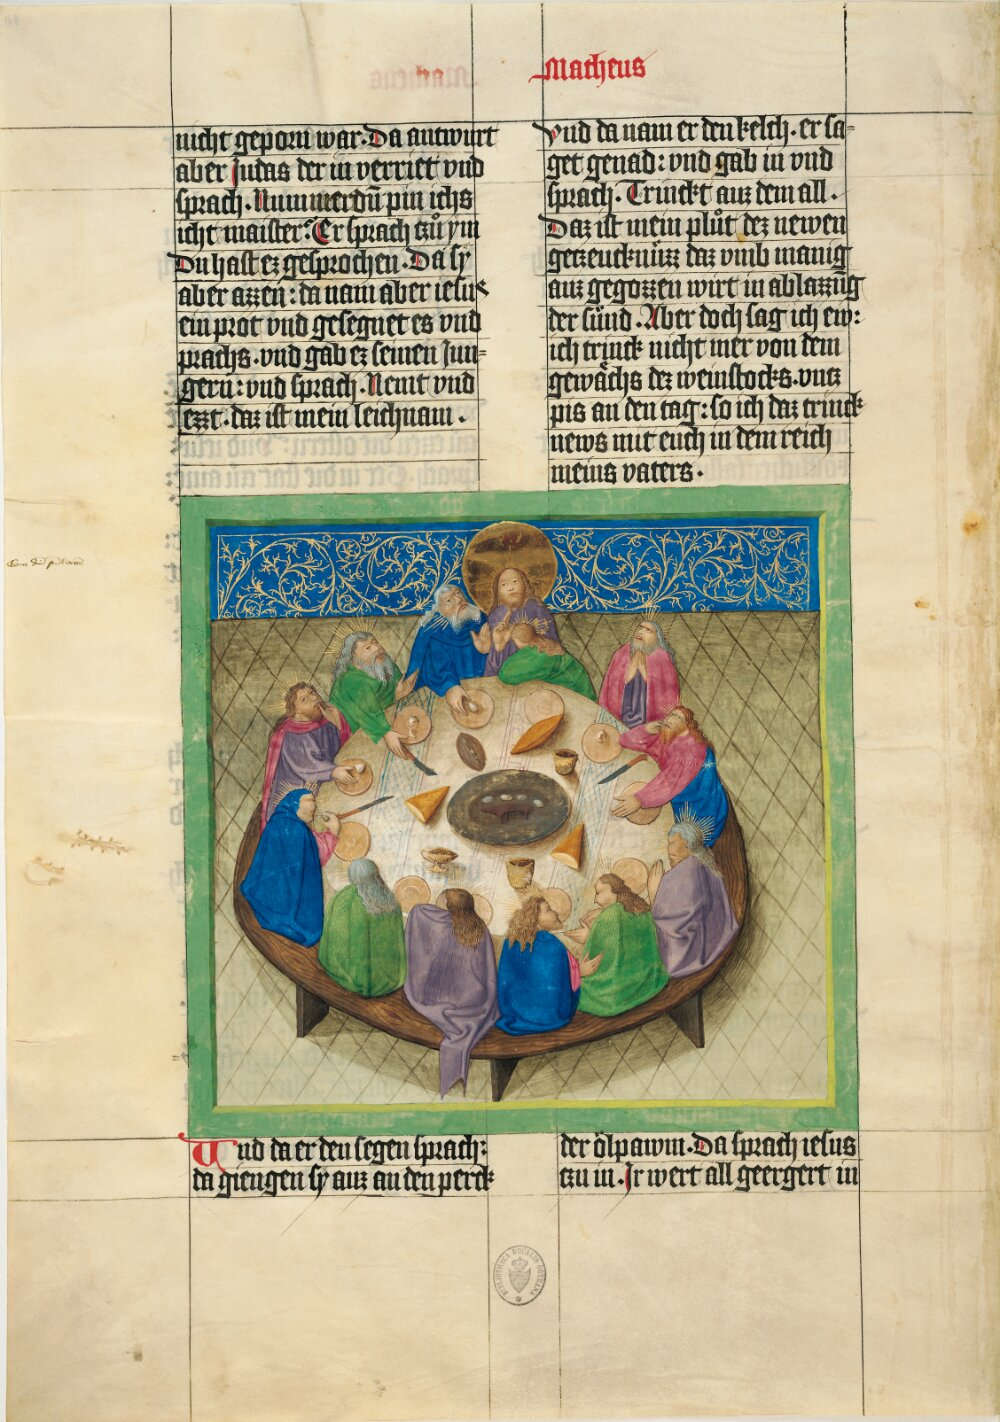 Matheus
nicht geporn war. Da antwurt
aber Judas der in verriet vnd
sprach. Nummerdũ pin ichs
icht maister? Er sprach czuͦ ym
Du hast ez gesprochen. Da sy
aber azzen: da nam aber iesus
ein prot vnd gesegnet es vnd
prachs. vnd gab ez seinen Jun=
gern: vnd sprach. Nemt vnd
ezzt. daz ist mein leichnam.
Vnd da nam er den kelch. er sa=
get genad: vnd gab in vnd
sprach. Trinckt auz dem all.
Daz ist mein pluͦt dez newen
geczeucknüzz daz vmb manig
auz gegozzen wirt in ablazzūg
der sünd. Aber doch sag ich ew:
ich trinck nicht mer von dem
gewächs dez weinstocks. vntz
pis an den tag: so ich daz trinck
news mit euch in dem reich
meins vaters.
Und da er den segen sprach:
da giengen sy auz an den perck
der ölpawm. Da sprach iesus
czu in. Jr wert all geergert in
BIBLIOTHECA DUCALIS GOTHANA